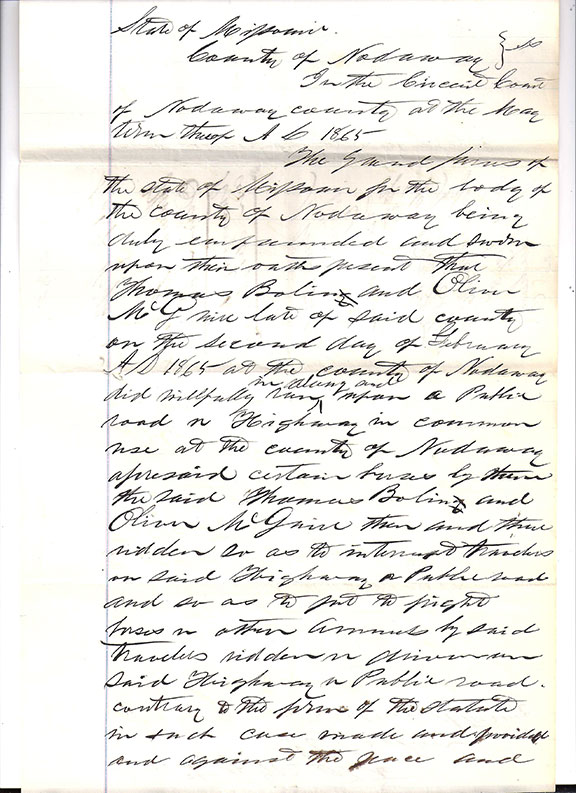 State of Missouri.
County of Nodaway } ss
In the Circuit Court
of Nodaway county at the May
term thereof A D 1865
The Grand jurors of
the state of Missouri for the body of
the county of Nodaway being
duly empannled and sworn
upon their oaths present that
Thomas Boling and Oliver
McGuire late of said county
on the second day of February
AD 1865 at the county of Nodaway
did willfully run in along and upon a Public
road or Highway in common
use at the county of Nodaway
aforesaid certain horses by them
the said Thomas Boling and
Oliver McGuire then and there
ridden so as to interrupt travelers
on said Highway or Public road
and so as to put to fright
horses or other Animals by said
travelers ridden or driven on
said Highway or Public road.
contrary to the form of the statute
in such case made and provided
and against the peace and